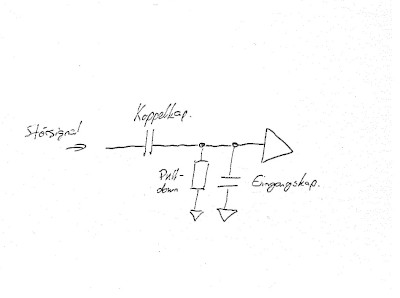 Koppelkap.
Störsignal
Pull-
down
Eingangskap.